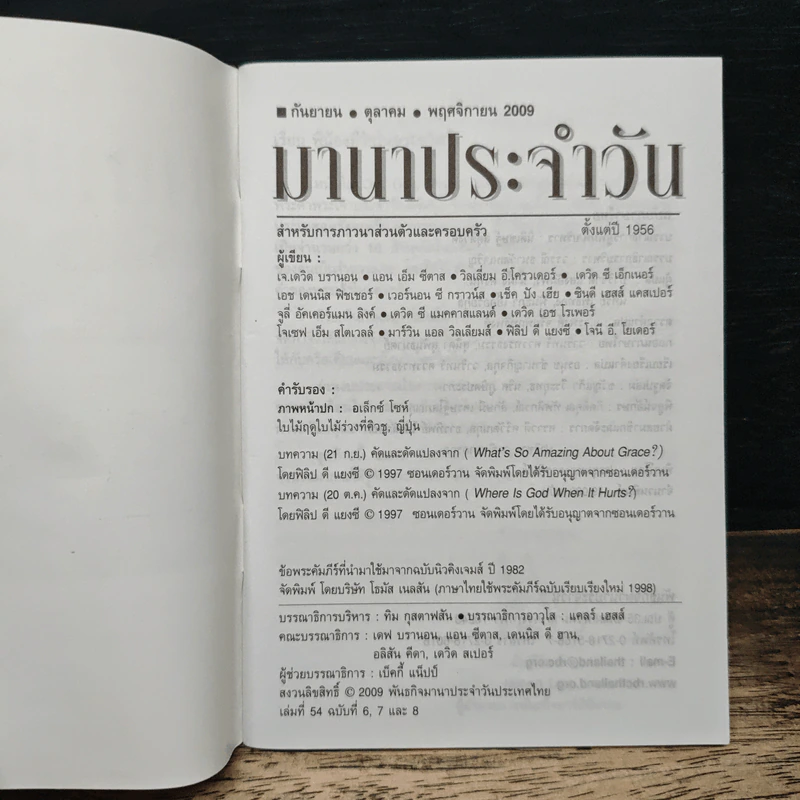 ■ กันยายน ● ตุลาคม ● พฤศจิกายน 2009
มานาประจำวัน
สำหรับการภาวนาส่วนตัวและครอบครัว ตั้งแต่ปี 1956
ผู้เขียน :
เจ.เดวิด บรานอน ● แอน เอ็ม ซีตาส ● วิลเลี่ยม อี.โครวเดอร์ ● เดวิด ซี เอ็กเนอร์
เอช เดนนิส ฟิชเชอร์ ● เวอร์นอน ซี กราวน์ส ● เช็ค ปัง เฮีย ● ซินดี เฮสส์ แคสเปอร์
จูลี อัคเคอร์แมน ลิงค์ ● เดวิด ซี แมคคาสแลนด์ ● เดวิด เอช โรเพอร์
โจเซฟ เอ็ม สโตเวลล์ ● มาร์วิน แอล วิลเลียมส์ ● ฟิลิป ดี แยงซี ● โจนี อี. โยเดอร์
คำรับรอง :
ภาพหน้าปก : อเล็กซ์ โซห์
ใบไม้ฤดูใบไม้ร่วงที่คิวชู, ญี่ปุ่น
บทความ (21 ก.ย.) คัดและดัดแปลงจาก ( What's So Amazing About Grace?)
โดยฟิลิป ดี แยงซี © 1997 ซอนเดอร์วาน จัดพิมพ์โดยได้รับอนุญาตจากซอนเดอร์วาน
บทความ (20 ต.ค.) คัดและดัดแปลงจาก ( Where Is God When It Hurts?)
โดยฟิลิป ดี แยงซี © 1997 ซอนเดอร์วาน จัดพิมพ์โดยได้รับอนุญาตจากซอนเดอร์วาน
ข้อพระคัมภีร์ที่นำมาใช้มาจากฉบับนิวคิงเจมส์ ปี 1982
จัดพิมพ์ โดยบริษัท โธมัส เนลสัน (ภาษาไทยใช้พระคัมภีร์ฉบับเรียบเรียงใหม่ 1998)
บรรณาธิการบริหาร : ทิม กุสตาฟสัน ● บรรณาธิการอาวุโส : แคลร์ เฮสส์
คณะบรรณาธิการ : เดฟ บรานอน, แอน ซีตาส, เดนนิส ดี ฮาน,
อลิสัน คีดา, เดวิด สเปอร์
ผู้ช่วยบรรณาธิการ : เบ็คกี้ แน็ปป์
สงวนลิขสิทธิ์ © 2009 พันธกิจมานาประจำวันประเทศไทย
เล่มที่ 54 ฉบับที่ 6, 7 และ 8